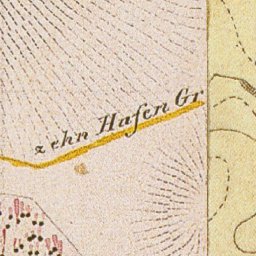 zehn Hasen Gr